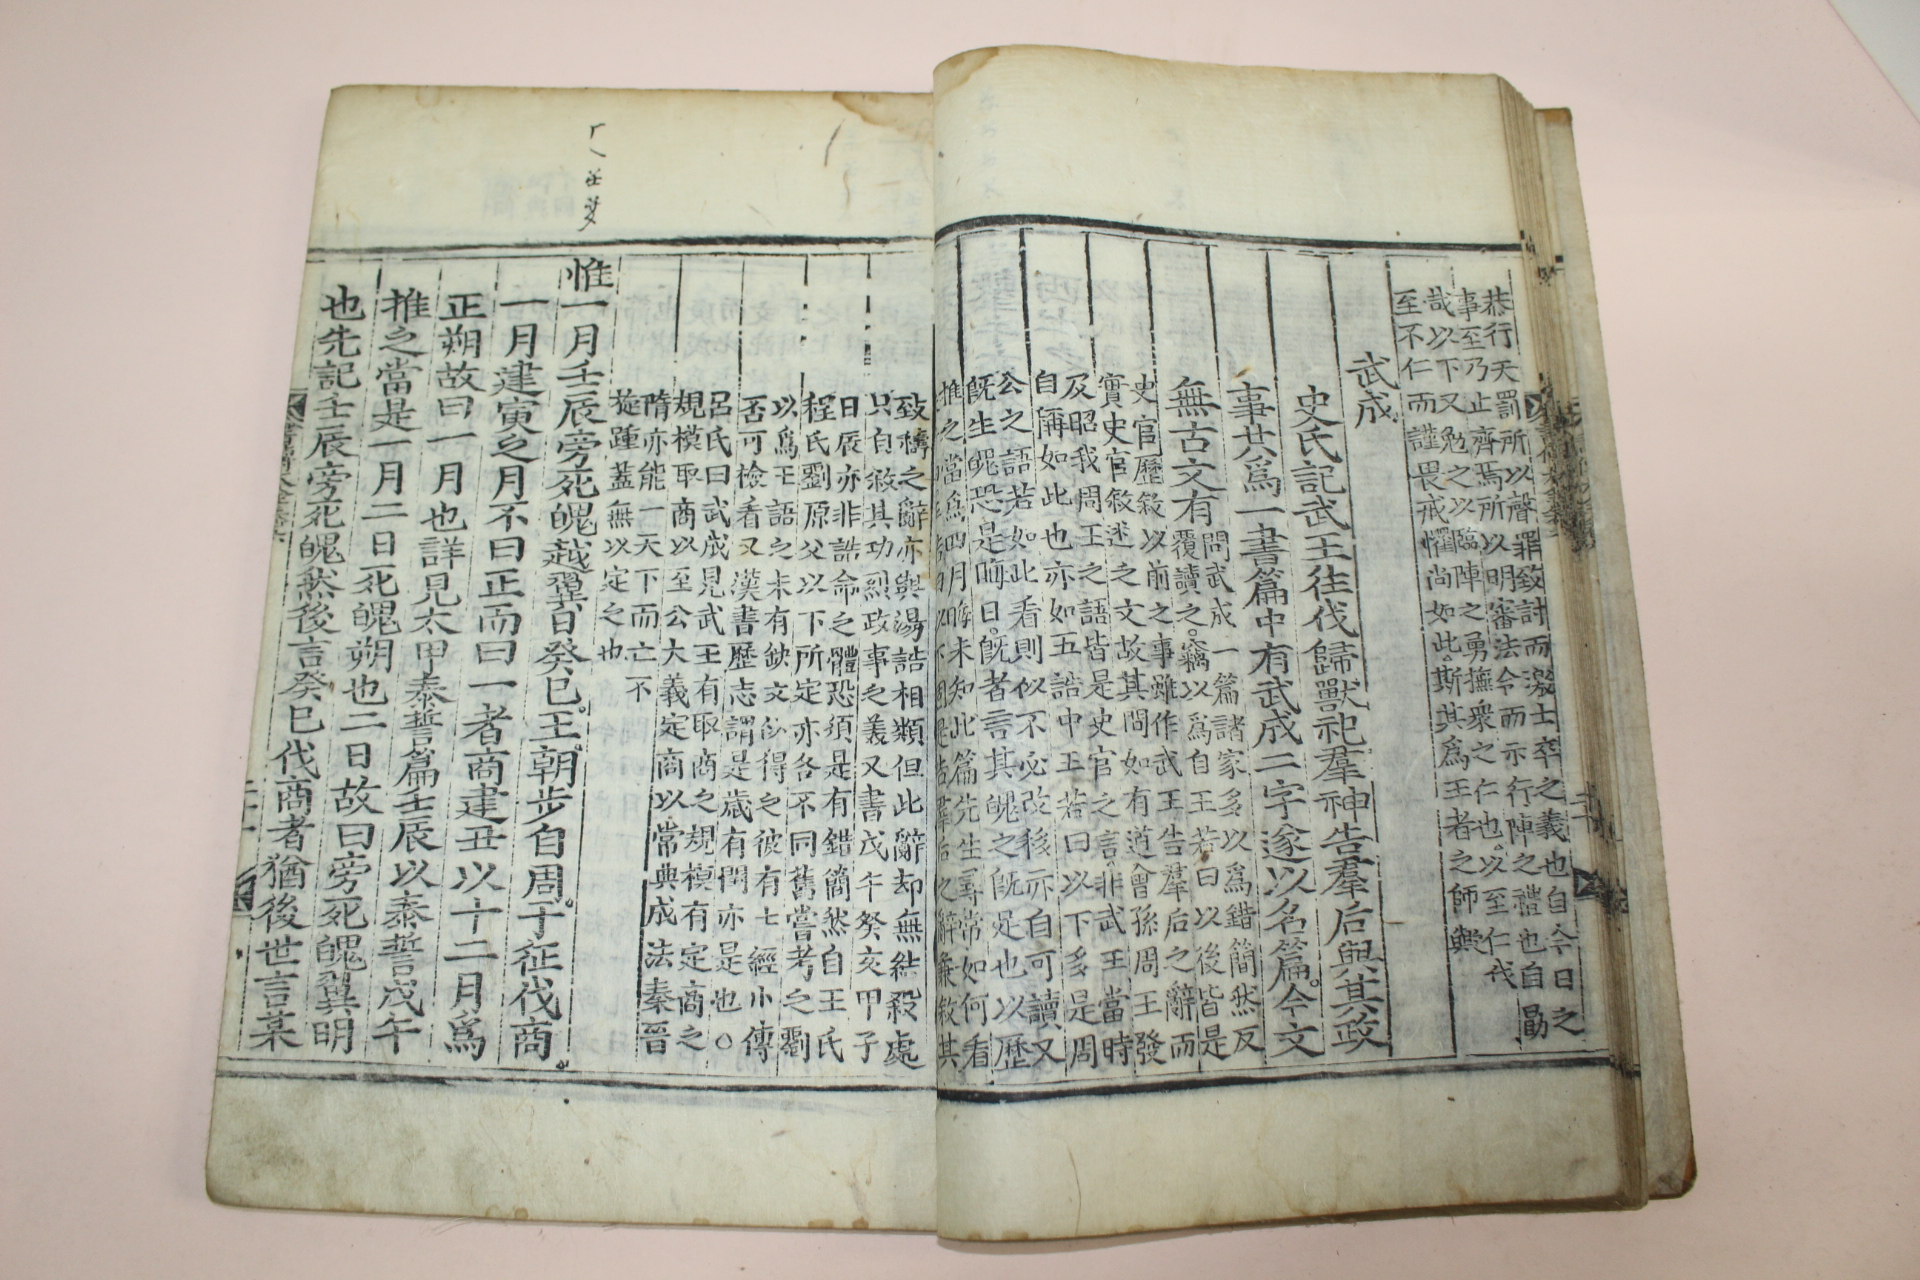 恭行天罰所以聲罪致討而激士卒之義也自今日之
事至乃止齊焉所以明審法令而示行陣之禮也自勗
哉以下又勉之以臨陣之勇撫衆之仁也以至仁伐
至不仁而謹畏戒懼尚如此斯其爲王者之師與
武成
史氏記武王往伐歸獸祀羣神告羣后與其政
事共爲一書篇中有武成二字遂以名篇今文
無古文有
問武成一篇諸家多以爲錯簡然反
覆讀之竊以爲自王若曰以後皆是
史官歷敍以前之事雖作武王告羣后之辭而
實史官敍述之文故其間如有道曾孫周王發
及昭我周王之語皆是史官之言非武王當時
自稱如此也亦如五誥中王若曰以下多是周
公之語若如此看則似不必改移亦自可讀又
旣生魄恐是晦日旣者言其魄之旣是也以歷
推之當爲四月晦未知此篇先生尋常如何看
致禱之辭亦與湯誥相類但此辭却無結殺處
只自敍其功烈政事之義又書戊午癸亥甲子
日辰亦非誥命之體恐須是有錯簡然自王氏
程氏劉原父以下所定亦各不同舊嘗考之劉
以爲王語之未有缺文似得之彼有七經小傳
否可檢看又漢書歷志謂是歲有閏亦是也○
呂氏曰武成見武王有取商之規模有定商之
規模取商以至公大義定商以常典成法秦晉
隋亦能一天下而亡不
旋踵蓋無以定之也
惟一月壬辰旁死魄越翼日癸巳王朝步自周于征伐商
一月建寅之月不曰正而曰一者商建丑以十二月爲
正朔故曰一月也詳見太甲泰誓篇壬辰以泰誓戊午
推之當是一月二日死魄朔也二日故曰旁死魄翼明
也先記壬辰旁死魄然後言癸巳伐商者猶後世言某